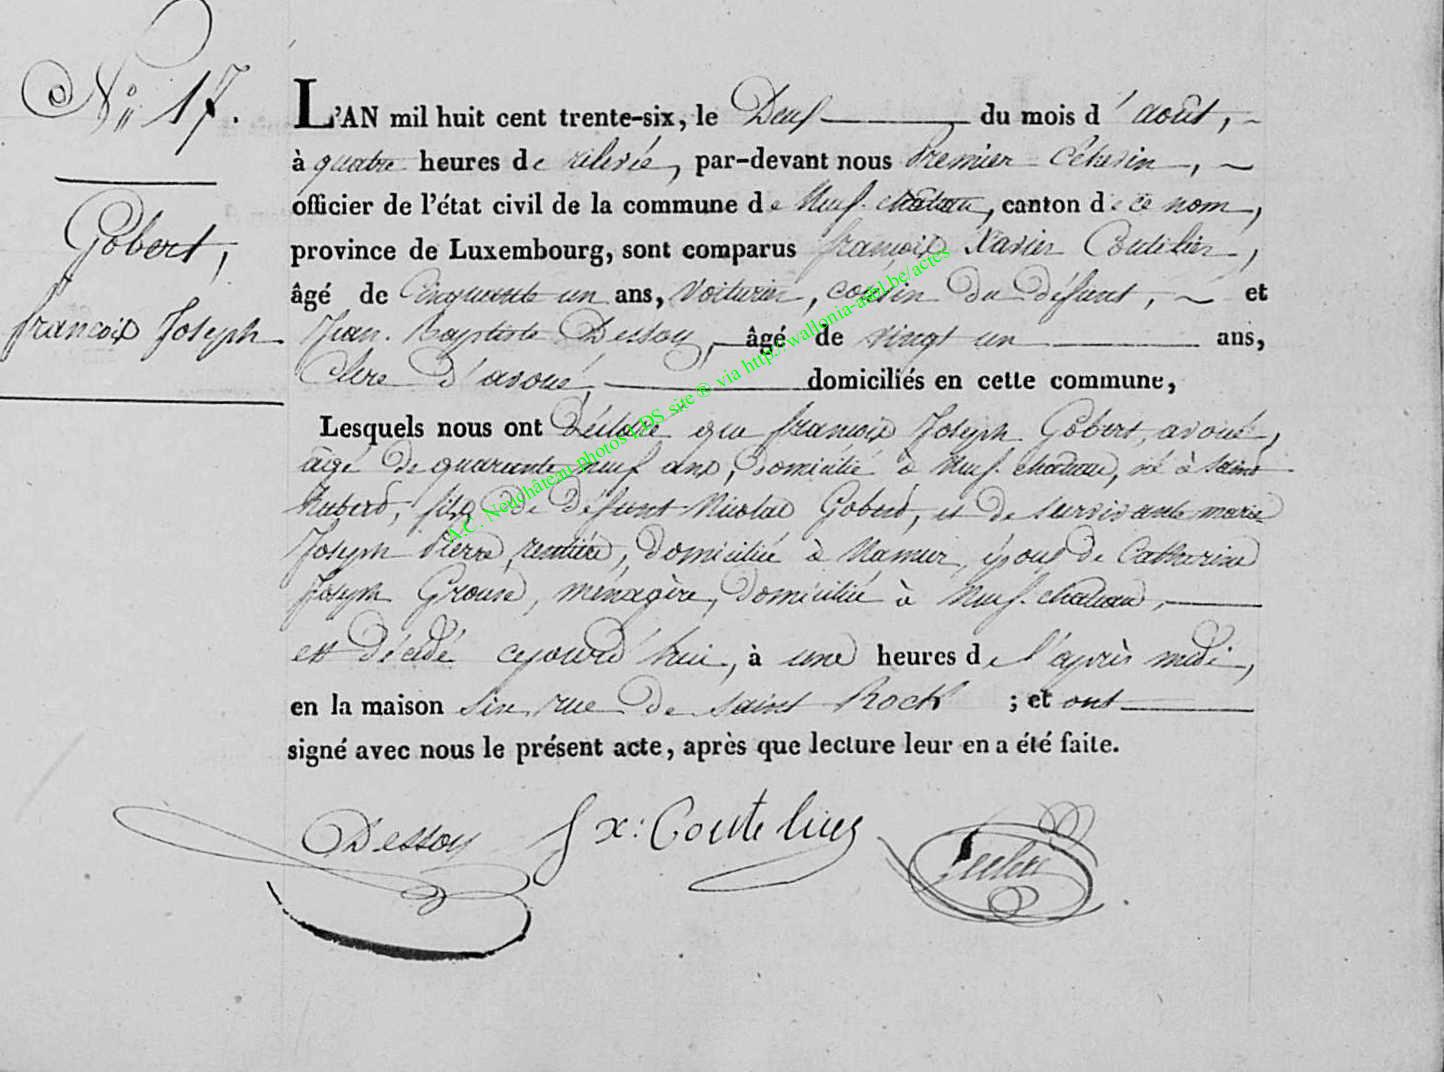 N° 17.
Gobert,
francoix Joseph
L'AN mil huit cent trente-six, le Deux du mois d'août,
à quatre heures de relevée, par-devant nous Premier Echevin,
officier de l'état civil de la commune de Neuf-château, canton de ce nom,
province de Luxembourg, sont comparus francoix Xavier Coutelier,
âgé de Cinquante un ans, Voiturier, cousin du défunt, et
Jean-Baptiste Dessoy, âgé de vingt un ans,
Clerc d'avoué domiciliés en cette commune,
Lesquels nous ont Déclaré que francoix Joseph Gobert, avoué,
agé de quarante neuf ans, domicilié à Neuf-chateau, né à Saint
hubert, fils de défunt Nicolas Gobert, et de survivante marie
Joseph Pierre, rentière, domiciliée à Namur, époux de Catherine
Joseph , ménagère, domiciliée à Neuf-chateau,
est décédé cejourd'hui, à une heures de l'après midi,
en la maison sise rue de saint Roch ; et ont
signé avec nous le présent acte, après que lecture leur en a été faite.
Dessoy fx: Coutelier
A.C. Neuchâteau photos LDS site ® via http://wallonia-asbl.be/actes